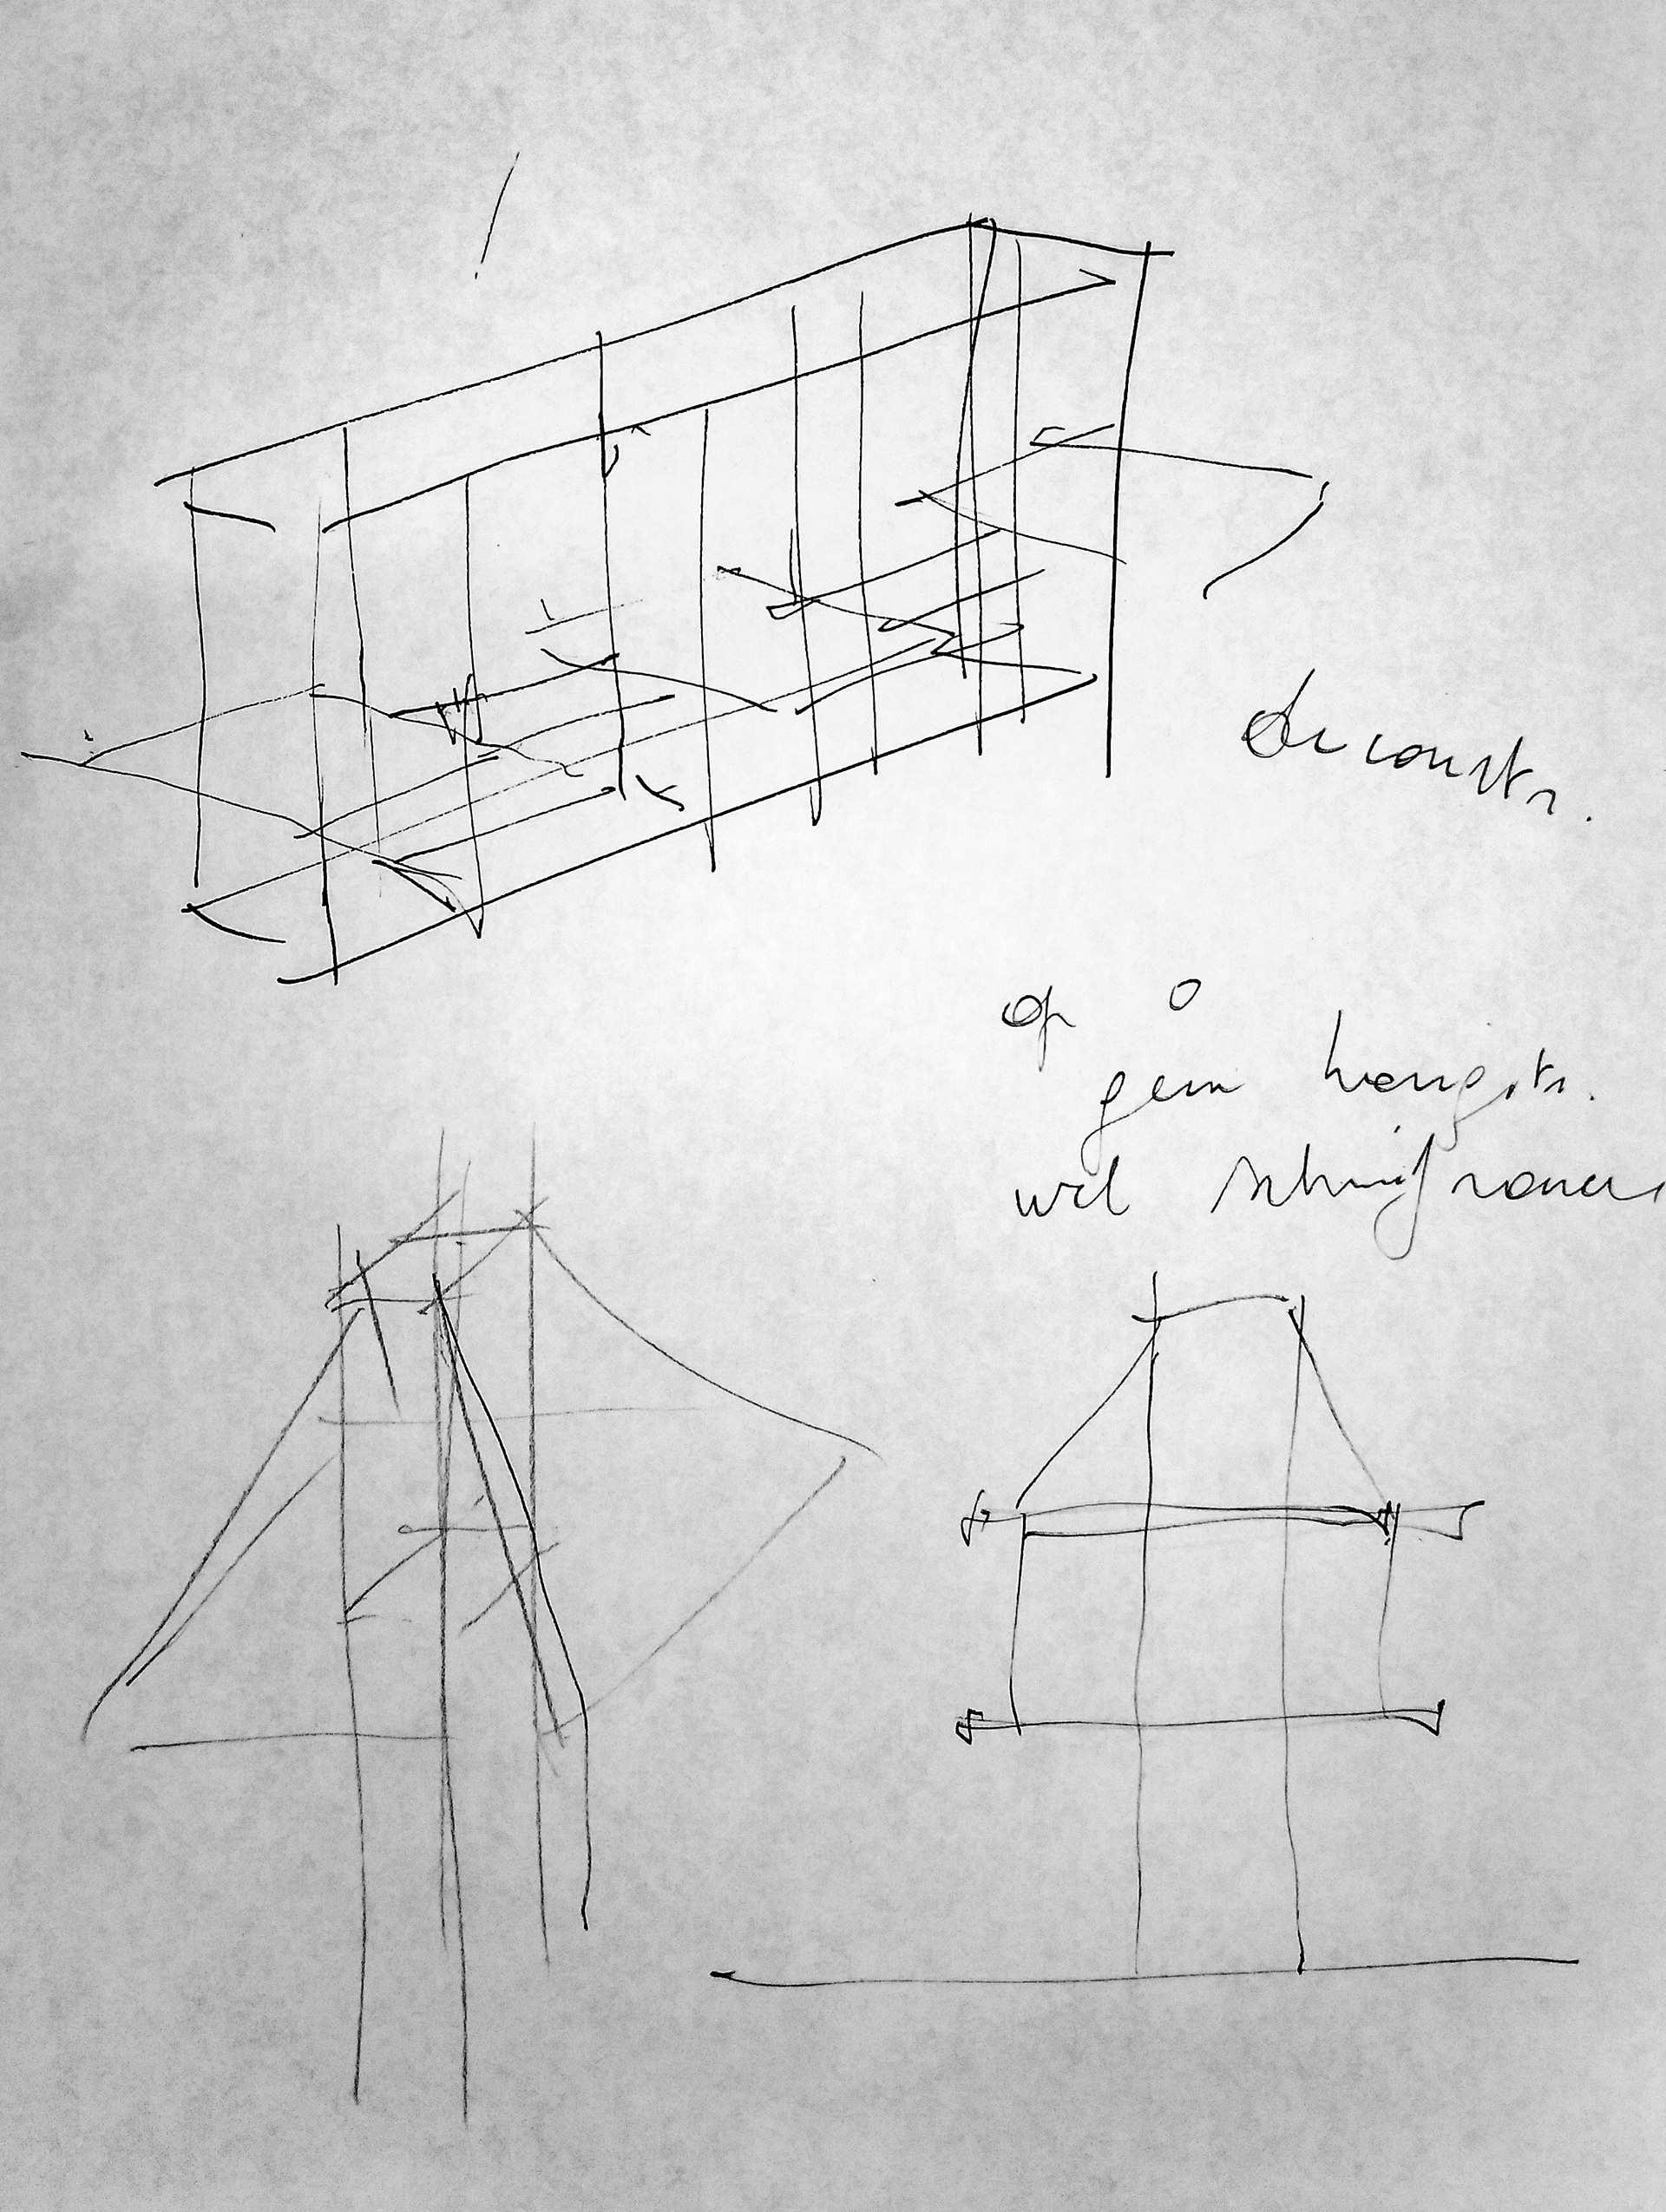 de constr.
op 0
geen hengstn.
wel schuiframen